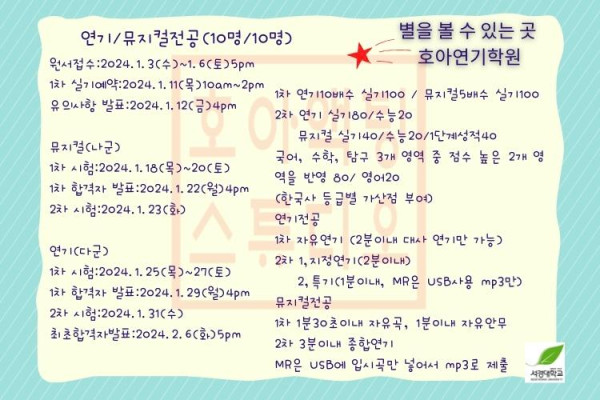 연기/뮤지컬전공(10명/10명)
별을 볼 수 있는 곳
호아연기학원
원서접수:2024.1.3(수)~1.6(토)5pm
1차 실기예약:2024.1.11(목)10am~2pm
유의사항 발표:2024.1.12(금)4pm
뮤지컬(나군)
1차 시험:2024.1.18(목)~20(토)
1차 합격자 발표:2024.1.22(월)4pm
2차 시험:2024.1.23(화)
연기(다군)
1차 시험:2024.1.25(목)~27(토)
1차 합격자 발표:2024.1.29(월)4pm
2차 시험:2024.1.31(수)
최초합격자발표:2024.2.6(화)5pm
1차 연기10배수 실기100 / 뮤지컬5배수 실기100
2차 연기 실기80/수능20
뮤지컬 실기40/수능20/1단계성적40
국어, 수학, 탐구 3개 영역 중 점수 높은 2개 영
역을 반영 80/ 영어20
(한국사 등급별 가산점 부여)
연기전공
1차 자유연기 (2분이내 대사 연기만 가능)
2차 1,지정연기(2분이내)
2,특기(1분이내, MR은 USB사용 mp3만)
뮤지컬전공
1차 1분30초이내 자유곡, 1분이내 자유안무
2차 3분이내 종합연기
MR은 USB에 입시곡만 넣어서 mp3로 제출
호아액팅
스튜디오
서경대학교